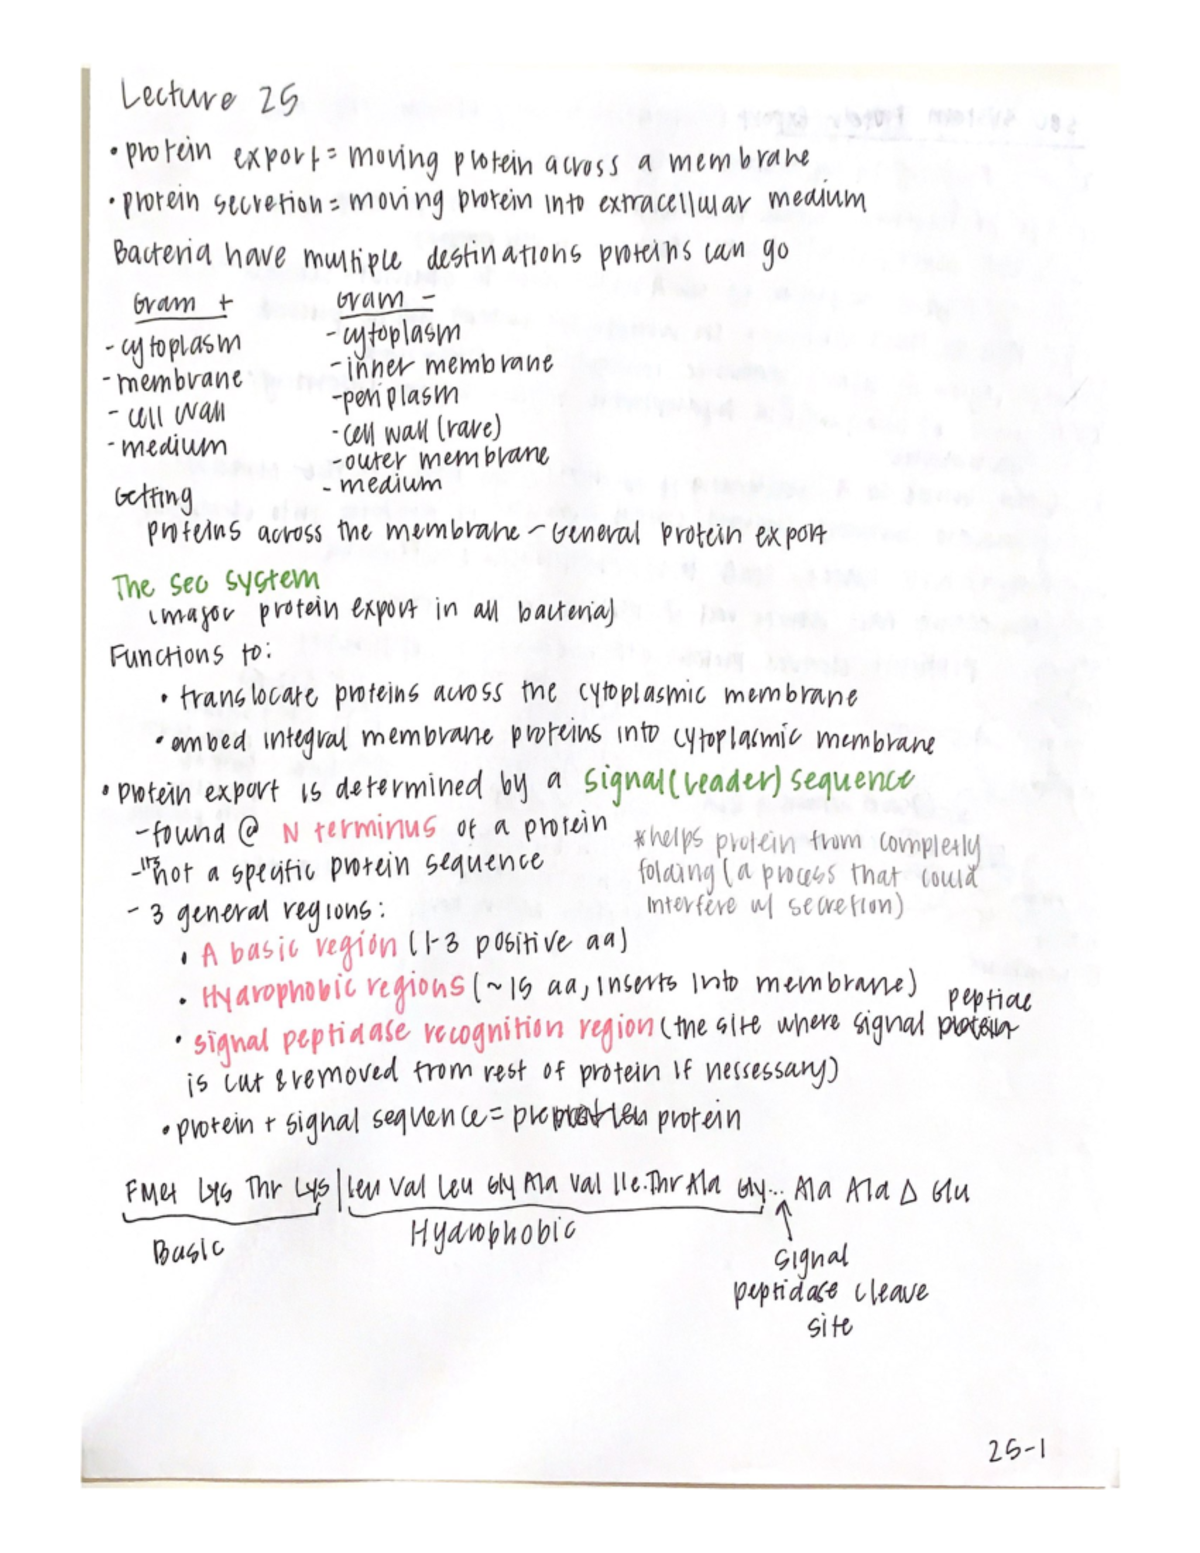 Lecture 25
• protein export = moving protein across a membrane
• protein secretion = moving protein into extracellular medium
Bacteria have multiple destinations proteins can go
Gram +
- cytoplasm
- membrane
- cell wall
- medium
Gram -
- cytoplasm
- inner membrane
- periplasm
- cell wall (rare)
- outer membrane
- medium
Getting
proteins across the membrane - General protein export
The Sec System
(major protein export in all bacteria)
Functions to:
• translocate proteins across the cytoplasmic membrane
• ambed integral membrane proteins into cytoplasmic membrane
• Protein export is determined by a signal (leader) sequence
- found @ N terminus of a protein
- its not a specific protein sequence
- 3 general regions:
*helps protein from completly
folding (a process that could
interfere w/ secretion)
• A basic region (1-3 positive aa)
• Hydrophobic regions (~15 aa, inserts into membrane)
peptide
• signal peptidase recognition region (the site where signal protein
is cut & removed from rest of protein if nessessary)
• protein + signal sequence = pre protein
FMet Lys Thr Lys | Leu Val Leu Gly Ala Val Ile. Thr Ala Gly... Ala Ala Δ Glu
Basic
Hydrophobic
signal
peptidase cleave
site
25-1